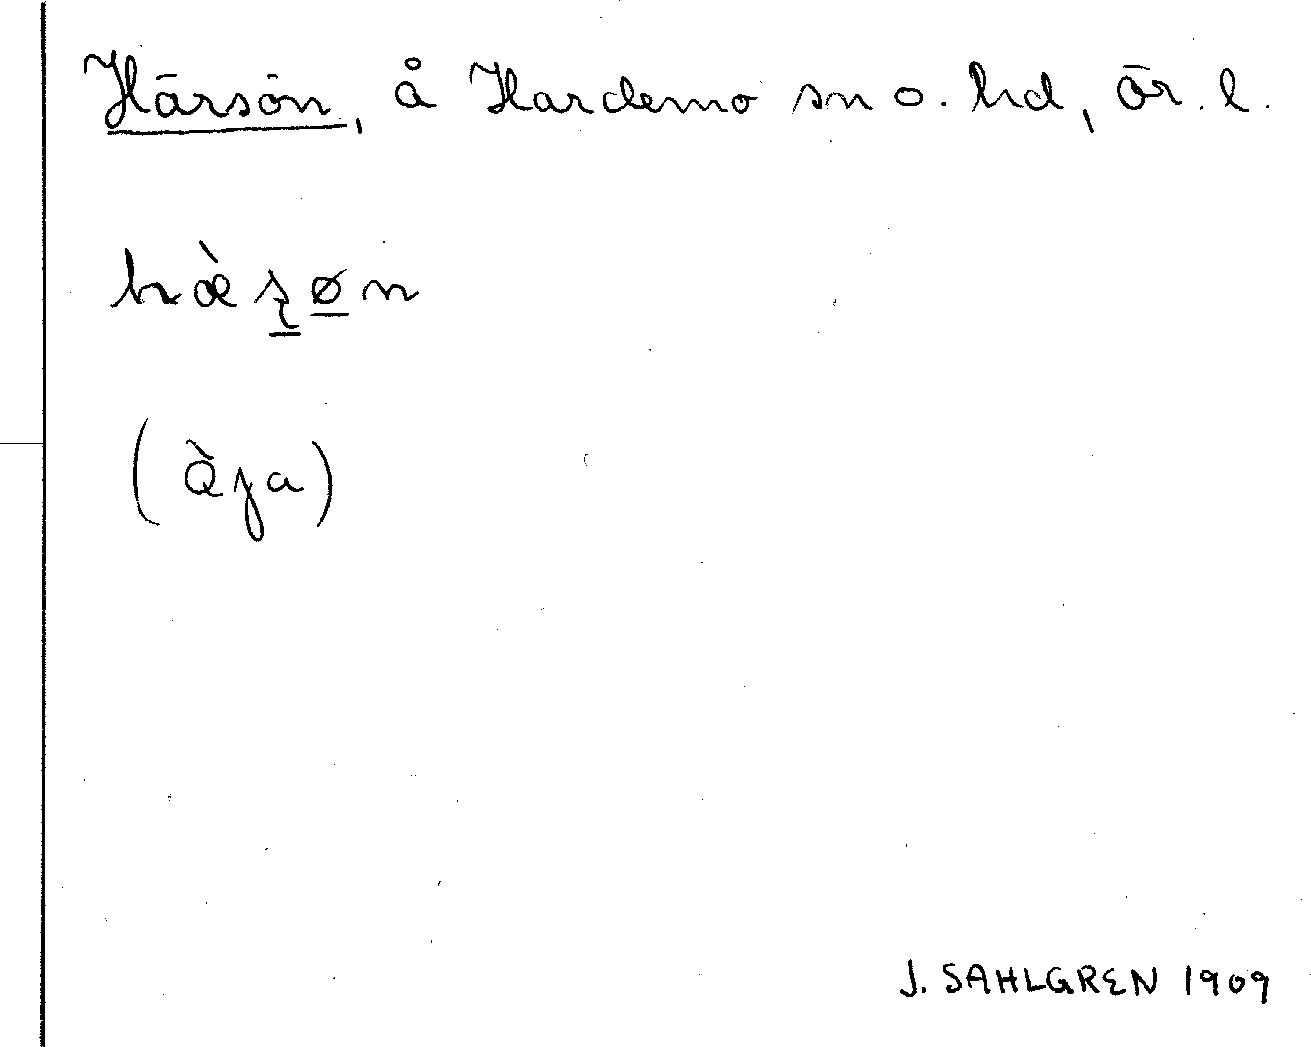 Härsön, å Hardemo sn o. hd, Ör. l.
hæ̀ʂøn
(òja)
J. SAHLGREN 1909